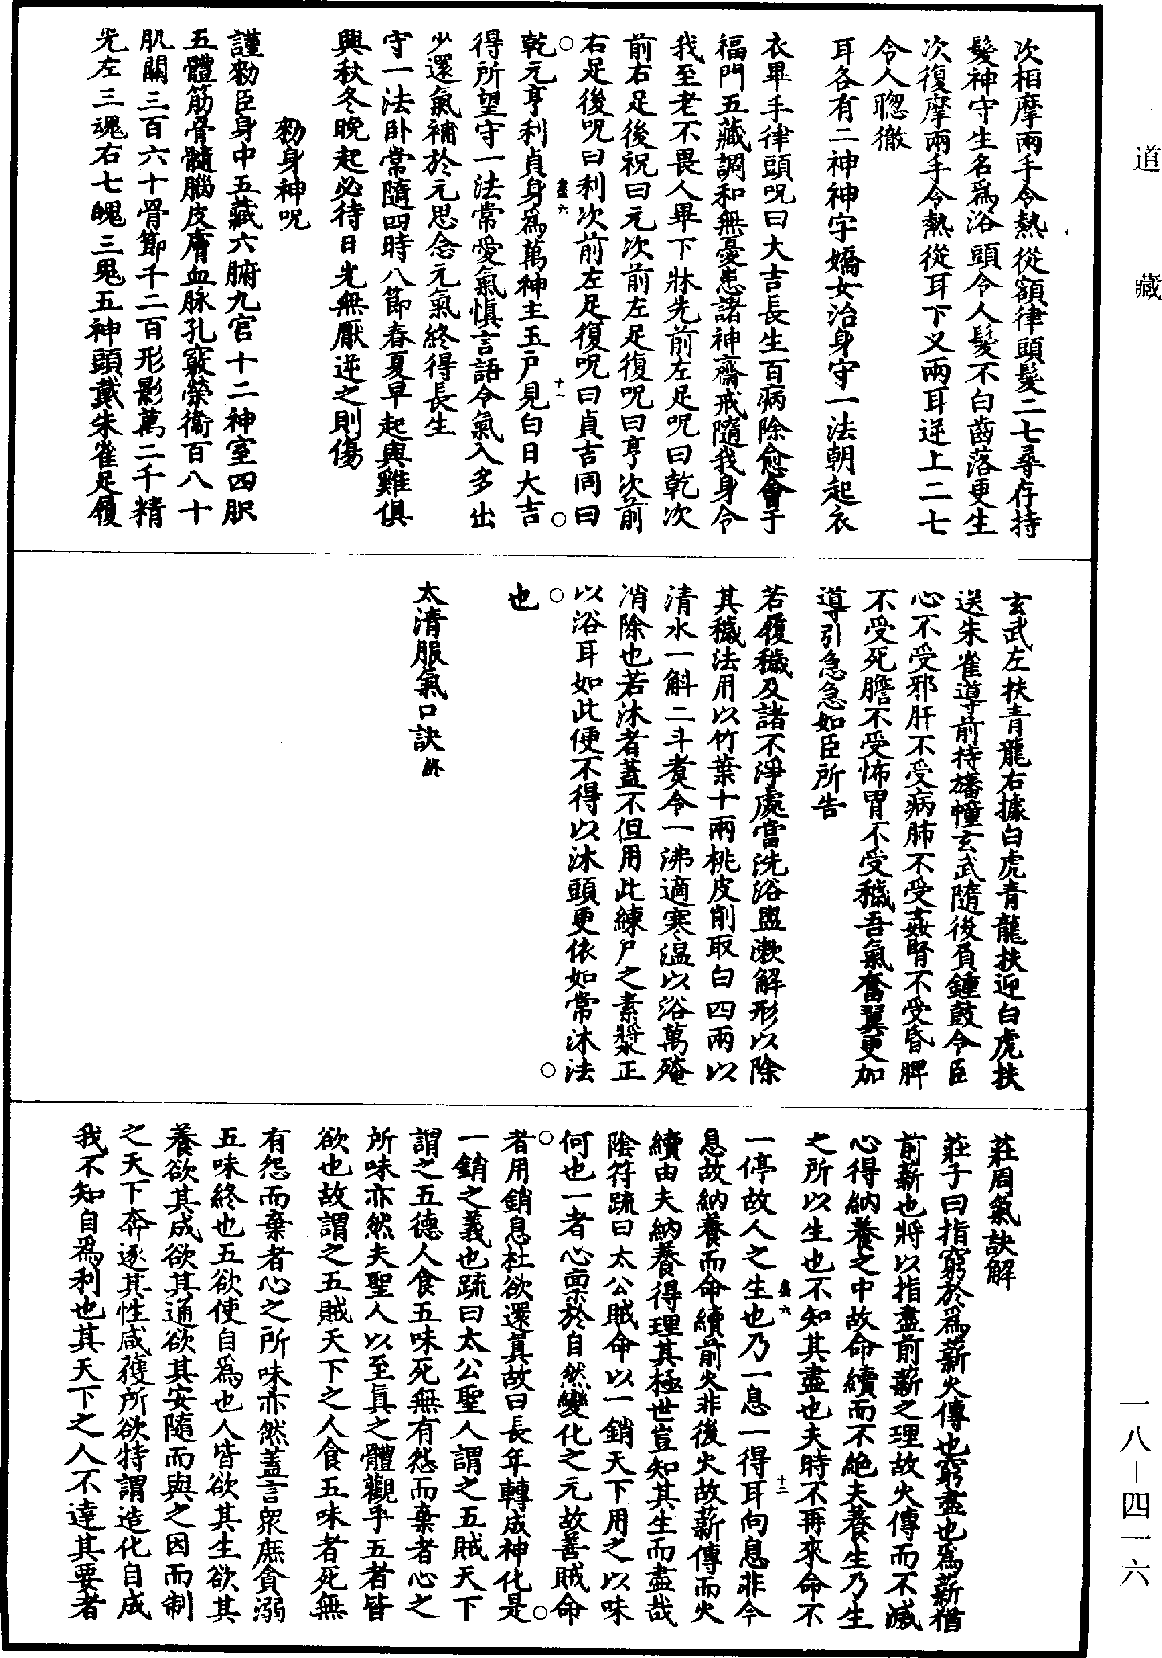 道藏
次相摩兩手令熱從額律頭髮二七尋存持
髮神守生名為浴頭令人髮不白齒落更生
次復摩兩手令熱從耳下乂兩耳逆上二七
令人聰徹
耳各有二神神字嬌女治身守一法朝起衣
衣畢手律頭呪曰大吉長生百病除愈會于
福門五藏調和無憂患諸神齋戒隨我身令
我至老不畏人畢下牀先前左足呪曰乾次
前右足後祝曰元次前左足復呪曰亨次前
右足後呪曰利次前左足復呪曰貞吉周曰
乾元亨利貞身為萬神主玉戶見白日大吉
得所望守一法常愛氣慎言語令氣入多出
少還氣補於元思念元氣終得長生
守一法卧常隨四時八節春夏早起與雞俱
興秋冬晚起必待日光無厭逆之則傷
勑身神呪
謹勑臣身中五藏六腑九宮十二神室四肢
五體筋骨髓腦皮膚血脉孔竅榮衞百八十
肌關三百六十骨節千二百形影萬二千精
光左三魂右七魄三魂五神頭戴朱雀足履
玄武左扶青龍右據白虎青龍扶迎白虎扶
送朱雀導前持旛幢玄武隨後負鍾鼓令臣
心不受邪肝不受病肺不受姦腎不受昏脾
不受死膽不受怖胃不受穢吾氣奮翼更加
導引急急如臣所告
若履穢及諸不淨處當洗浴盥漱解形以除
其穢法用以竹葉十兩桃皮削取白四兩以
清水一斛二斗煑令一沸適寒溫以浴萬殗
消除也若沐者蓋不但用此練尸之素漿正
以浴耳如此便不得以沐頭更依如常沐法
也
太清服氣口訣終
莊周氣訣解
莊子曰指窮於為薪火傳也窮盡也為薪猶
前薪也將以指盡前薪之理故火傳而不滅
心得納養之中故命續而不絕夫養生乃生
之所以生也不知其盡也夫時不再來命不
一停故人之生也乃一息一得耳向息非今
息故納養而命續前火非後火故薪傳而火
續由夫納養得理其極世豈知其生而盡哉
陰符疏曰太公賊命以一銷天下用之以味
何也一者心禀於自然變化之元故善賊命
者用銷息杜欲還真故曰長年轉成神化是
一銷之義也疏曰太公聖人謂之五賊天下
謂之五德人食五味死無有怨而棄者心之
所味亦然夫聖人以至真之體觀乎五者皆
欲也故謂之五賊天下之人食五味者死無
有怨而棄者心之所味亦然蓋言眾庶貪溺
五味終也五欲使自為也人皆欲其生欲其
養欲其成欲其通欲其安隨而與之因而制
之天下奔逐其性咸獲所欲特謂造化自成
我不知自為利也其天下之人不達其要者
一八－四一六